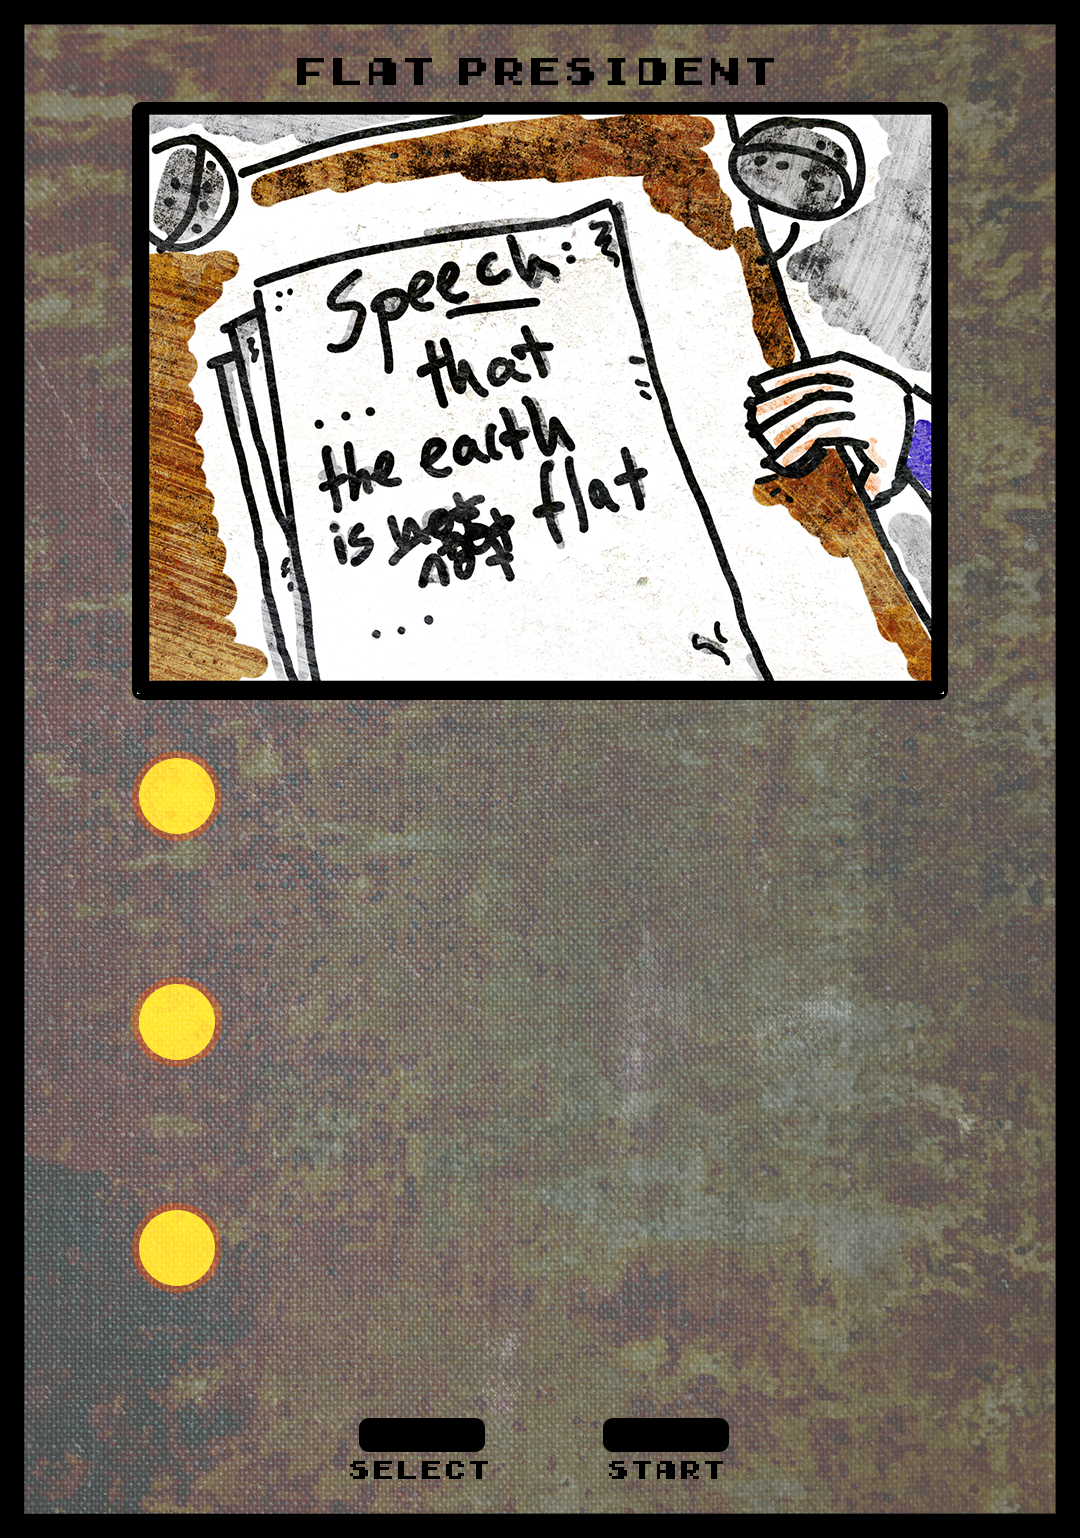 FLAT PRESIDENT
Speech:
... that
the earth
is not flat
...
SELECT
START